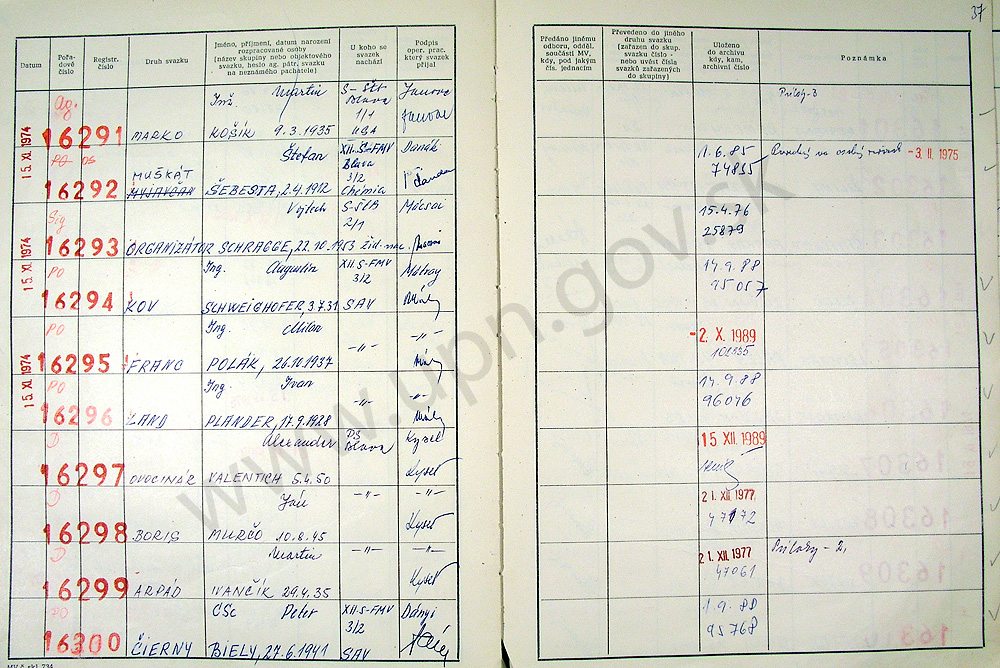 37
Datum
Pořadové číslo
Registr. číslo
Druh svazku
Jméno, příjmení, datum narození
rozpracované osoby
(název skupiny nebo objektového
svazku, heslo ag. pátr. svazku
na neznámého pachatele)
U koho se
svazek
nachází
Podpis
oper. prac.
který svazek
přijal
Předáno jinému
odboru, odděl.
součásti MV,
kdy, pod jakým
čís. jednacím
Převedeno do jiného
druhu svazku
(zařazen do skup.
svazku číslo -
nebo uvést čísla
svazků zařazených
do skupiny)
Uloženo
do archivu
kdy, kam,
archivní číslo
Poznámka
15. XI. 1974
Ag.
16291 MARKO
Inž. Martin
KOŠÍK 9.3.1935
S-ŠtB
Blava
1/1
Prílohy-3
PO
16292 MUŠKÁT
Štefan
ŠEBESTA, 2.4.1912
XII.S-FMV
Blava
3/2
Chémia
Danák
1.6.85
74835
- 3. II. 1975
15. XI. 1974
16293 ORGANIZÁTOR
Vojtech
SCHRAGGE, 22.10.1953 žid. nac.
S-ŠtB
2/1
Mácsai
15.4.76
25879
PO
16294 KOV
Ing. Augustín
SCHWEIGHOFER, 3.7.31
XII.S-FMV
3/2
SAV
14.9.88
95057
15. XI. 1974
PO
16295 FRANC
Ing. Milan
POLÁK, 26.10.1937
-"-
-"-
-2. X. 1989
PO
16296 LAND
Ing. Ivan
PLANDER, 17.9.1928
-"-
-"-
14.9.88
96076
D
16297 OVOCINÁR
Alexander
VALENTICH 5.4.50
Blava
Kysel
15 XII. 1989
D
16298 BORIS
Ján
MURČO 10.8.45
-"-
-"-
Kysel
21. XII. 1977
47172
D
16299 ARPÁD
Martin
IVANČÍK 29.4.35
-"-
-"-
Kysel
21. XII. 1977
47061
Prílohy - 2,
PO
16300 ČIERNY
CSc Peter
BIELY, 27.6.1941
XII.S-FMV
3/2
SAV
Dányi
1.9.88
95768
www.upn.gov.sk